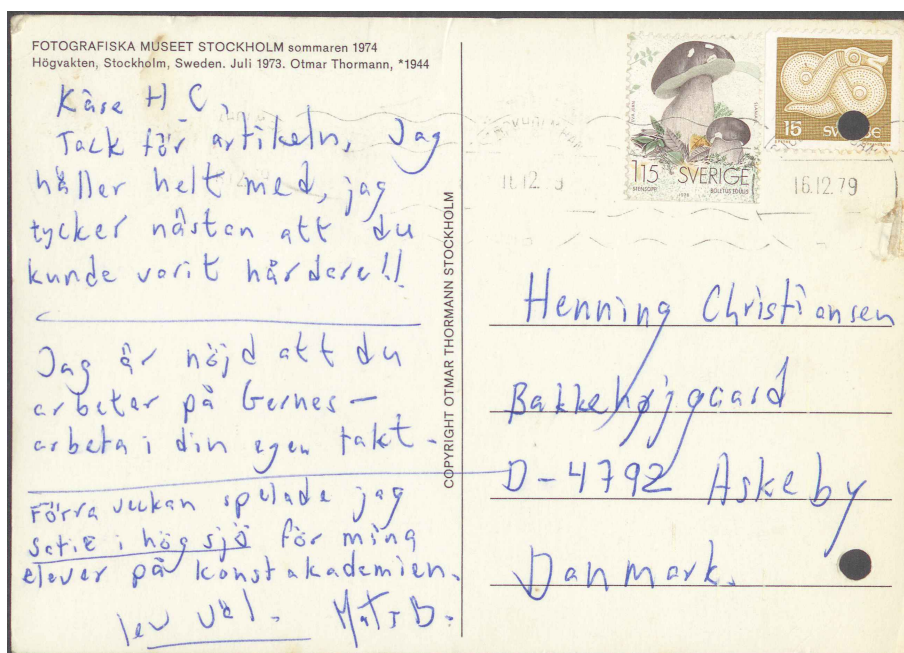 FOTOGRAFISKA MUSEET STOCKHOLM sommaren 1974
Högvakten, Stockholm, Sweden. Juli 1973. Otmar Thormann, *1944
Käre H C,
Tack för artikeln, Jag
håller helt med, jag
tycker nästan att du
kunde varit hårdare!!
Jag är nöjd att du
arbetar på Gernes –
arbeta i din egen takt.
Förra veckan spelade jag
Satie i hög sjö för mina
elever på konstakademien.
lev väl. Mats B.
COPYRIGHT OTMAR THORMANN STOCKHOLM
115 SVERIGE
STENSOPP BOLETUS EDULIS
15 SVERIGE
16.12.79
Henning Christiansen
Bakkehøjgaard
D-4792 Askeby
Danmark.